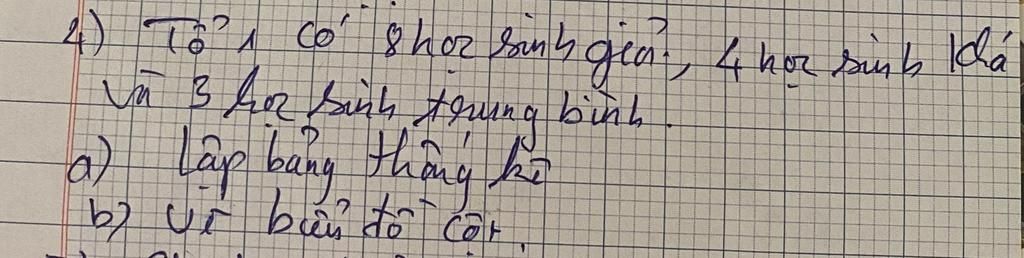 4) Tổ 1 có 8 học sinh giỏi, 4 học sinh khá
và 3 học sinh trung bình.
a) Lập bảng thống kê
b) Vẽ biểu đồ cột.